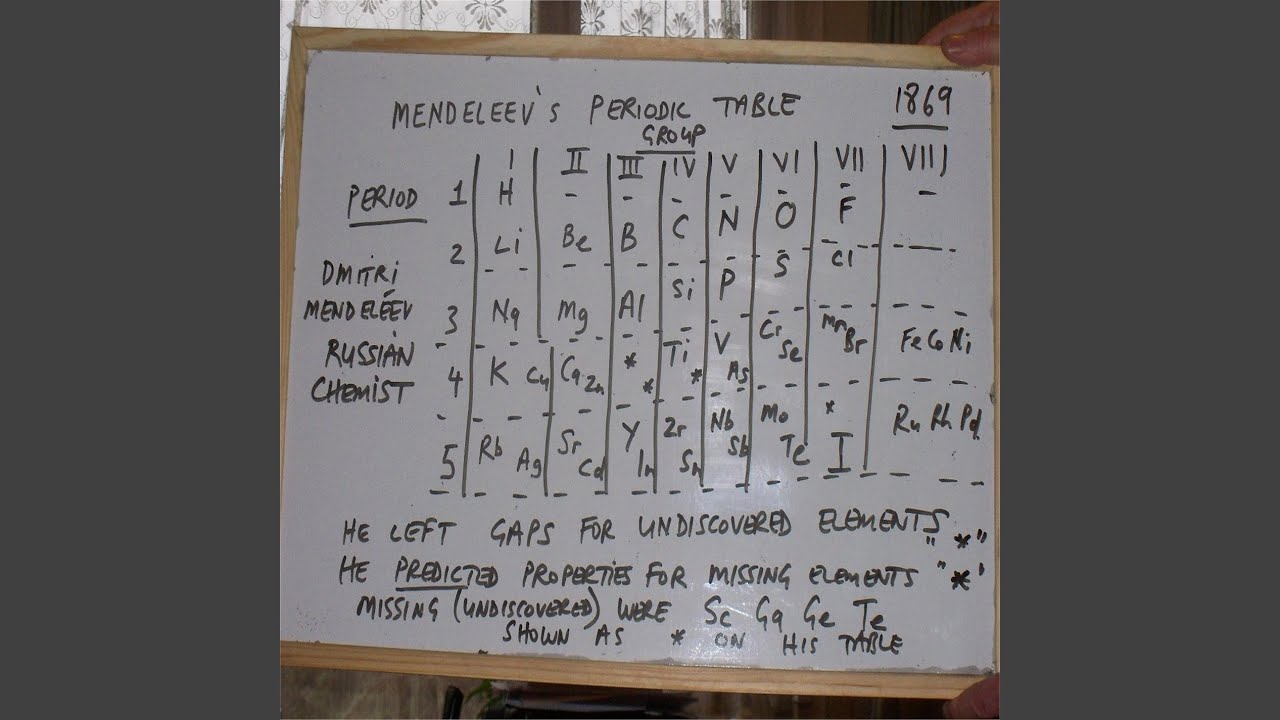 MENDELEEV'S PERIODIC TABLE 1869
GROUP
I II III IV V VI VII VIII
PERIOD 1 H - - - - - - -
2 Li Be B C N O F
DMITRI
MENDELÉEV
RUSSIAN
CHEMIST
3 Na Mg Al Si P S Cl
4 K Cu Ca Zn * * Ti * V As Cr Se Mn Br Fe Co Ni
5 Rb Ag Sr Cd Y In Zr Sn Nb Sb Mo Te * I Ru Rh Pd
HE LEFT GAPS FOR UNDISCOVERED ELEMENTS "*"
HE PREDICTED PROPERTIES FOR MISSING ELEMENTS "*"
MISSING (UNDISCOVERED) WERE Sc Ga Ge Te
SHOWN AS * ON HIS TABLE